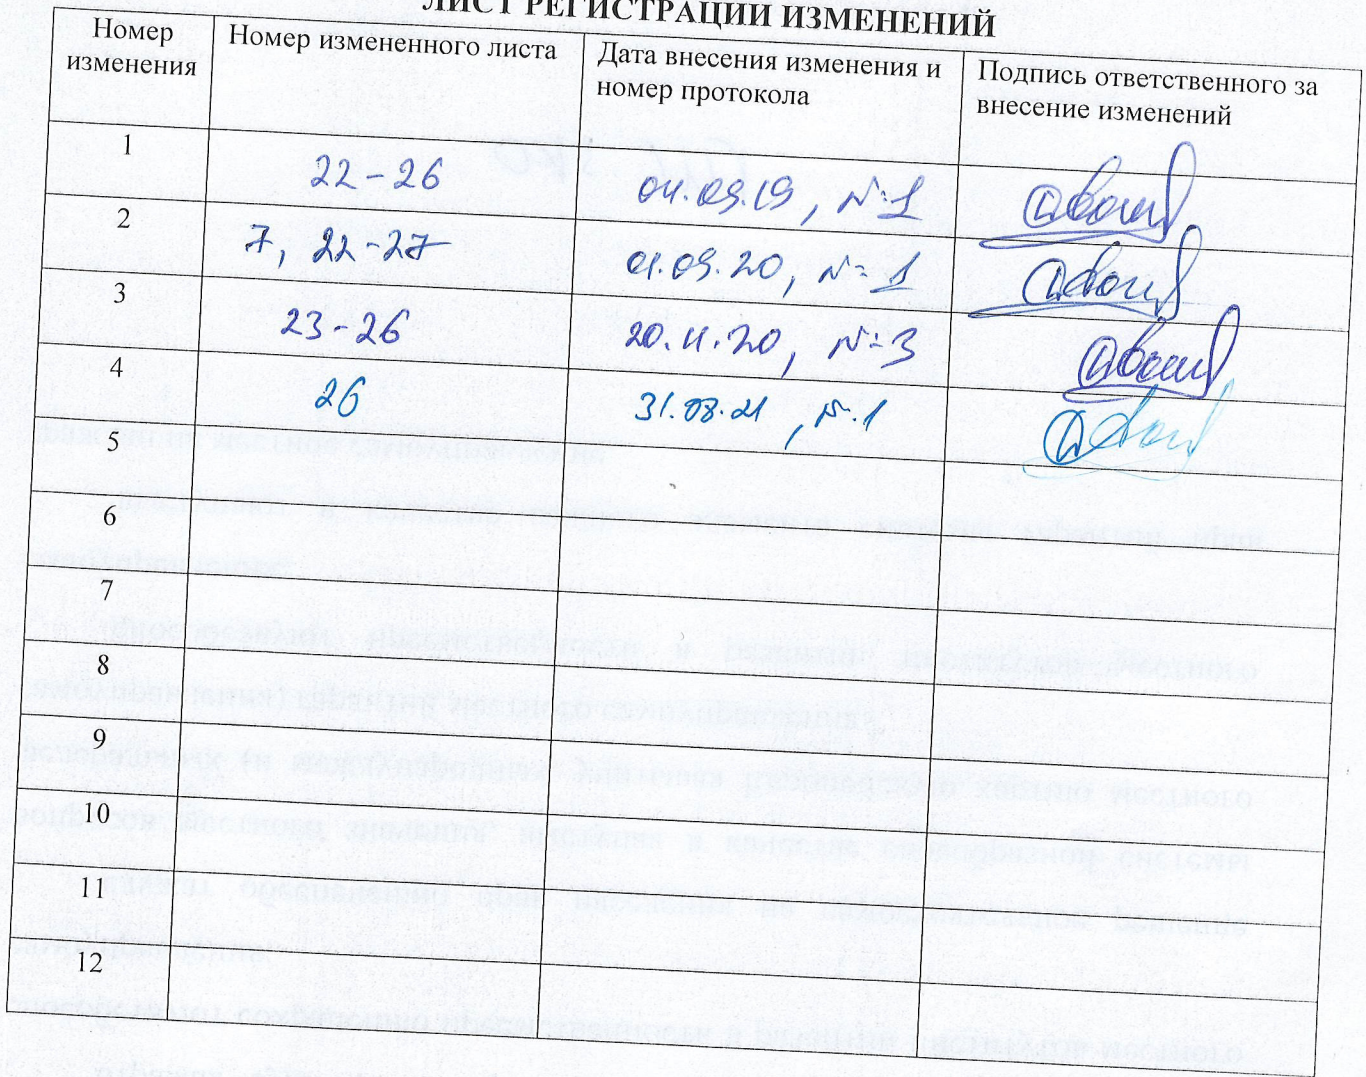 ЛИСТ РЕГИСТРАЦИИ ИЗМЕНЕНИЙ
Номер изменения
Номер измененного листа
Дата внесения изменения и номер протокола
Подпись ответственного за внесение изменений
1
22-26
04.09.19, №1
2
7, 22-27
01.09.20, №1
3
23-26
20.11.20, №3
4
26
31.08.21, №1
5
6
7
8
9
10
11
12